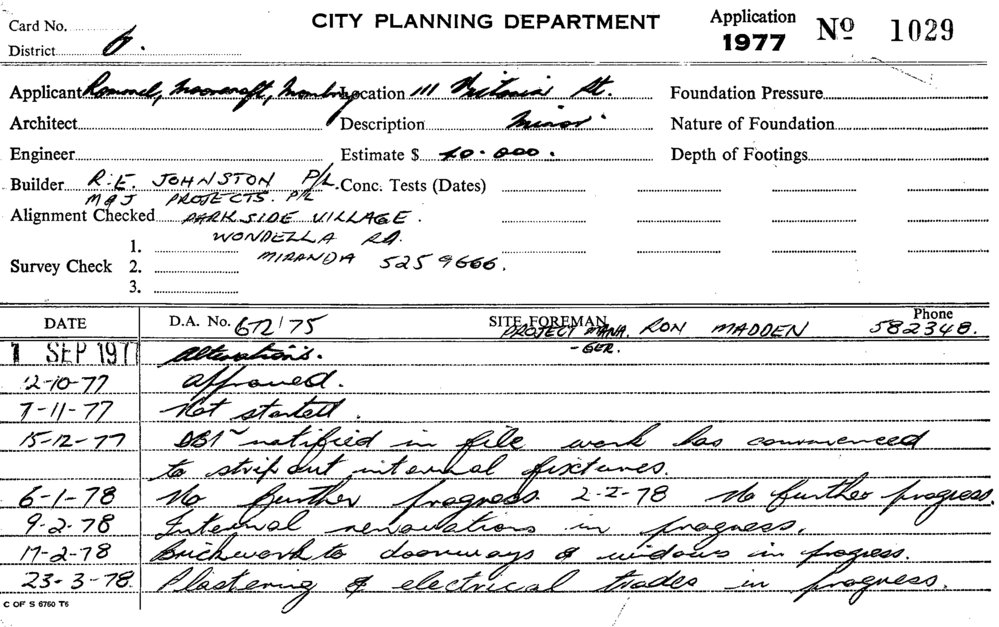 Card No.
CITY PLANNING DEPARTMENT
Application
1977
Nº 1029
District 6.
Applicant Rommel, Moorcroft, Location 111 Victoria St.
Foundation Pressure
Architect
Description Minor
Nature of Foundation
Engineer
Estimate $ 40.000.
Depth of Footings
Builder R.E. JOHNSTON P/L.
Conc. Tests (Dates)
M & J PROJECTS. P/L
Alignment Checked PARKSIDE VILLAGE.
WONDELLA RD.
1.
MIRANDA 525 9666.
Survey Check 2.
3.
DATE
D.A. No. 672/75
SITE FOREMAN
Phone
PROJECT MANA-GER. RON MADDEN 582348.
1 SEP 197 Alterations.
12-10-77 Approved.
7-11-77 Not started.
15-12-77 DBI notified in file work has commenced
to strip out internal fixtures.
6-1-78 No further progress. 2-2-78 No further progress.
9-2-78 Internal renovations in progress.
17-2-78 Brickwork to doorways & windows in progress.
23-3-78. Plastering & electrical trades in progress.
C OF S 6760 T6